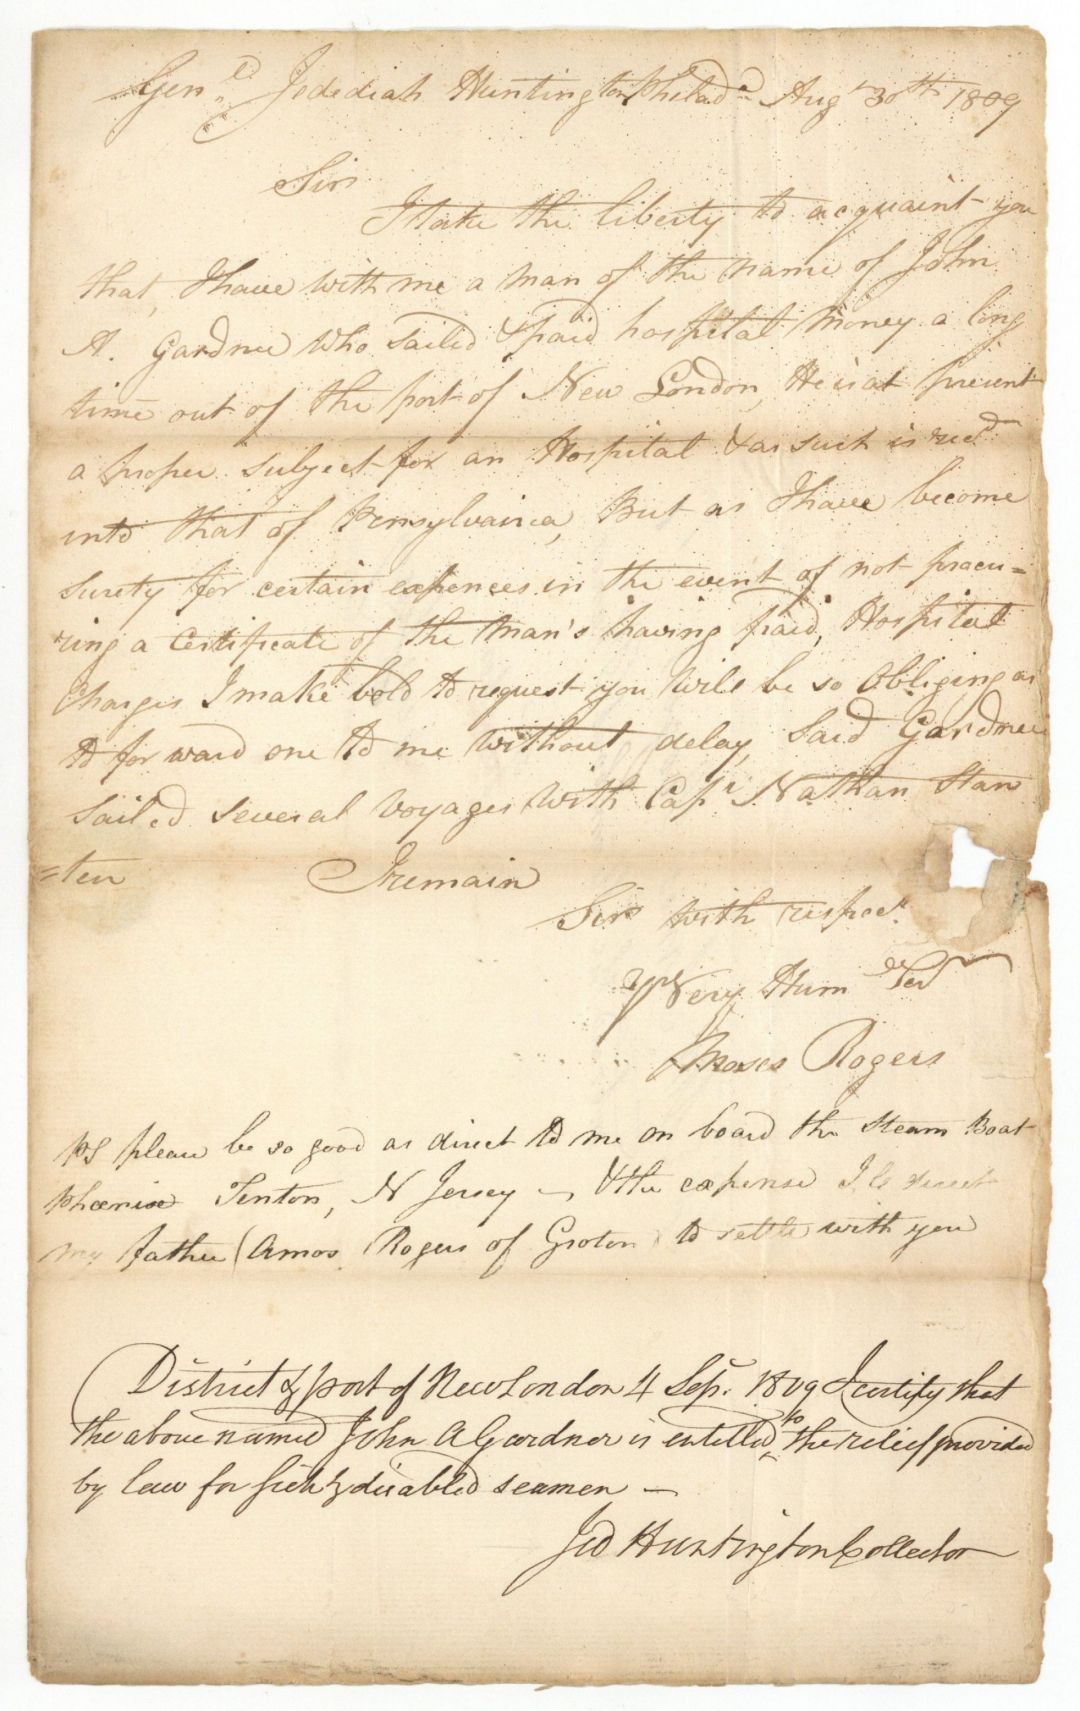 Genl Jedediah Huntington Philada Augt 30th 1809
Sir
I take the liberty to acquaint you
that, I have with me a man of the name of John
A. Gardner who sailed & paid hospital money a long
time out of the port of New London, He is at present
a proper subject for an Hospital & as such is recd
into that of Pennsylvania, But as I have become
surety for certain expences in the event of not procu=
ring a Certificate of the Man's having paid, Hospital
Charges I make bold to request you will be so Obliging as
to forward one to me without delay, Said Gardner
sailed several voyages with Capt Nathan Stan
=ten I remain
Sir with respect
Very Hum Ser
Moses Rogers
PS please be so good as direct to me on board the Steam Boat
Phœnix Trenton, N Jersey — & the expense I'le direct
my father (Amos Rogers of Groton) to settle with you
District & port of New London 4 Sepr. 1809 I certify that
the above named John A Gardner is entitled to the relief provided
by law for sick & disabled seamen —
Jed Huntington Collector